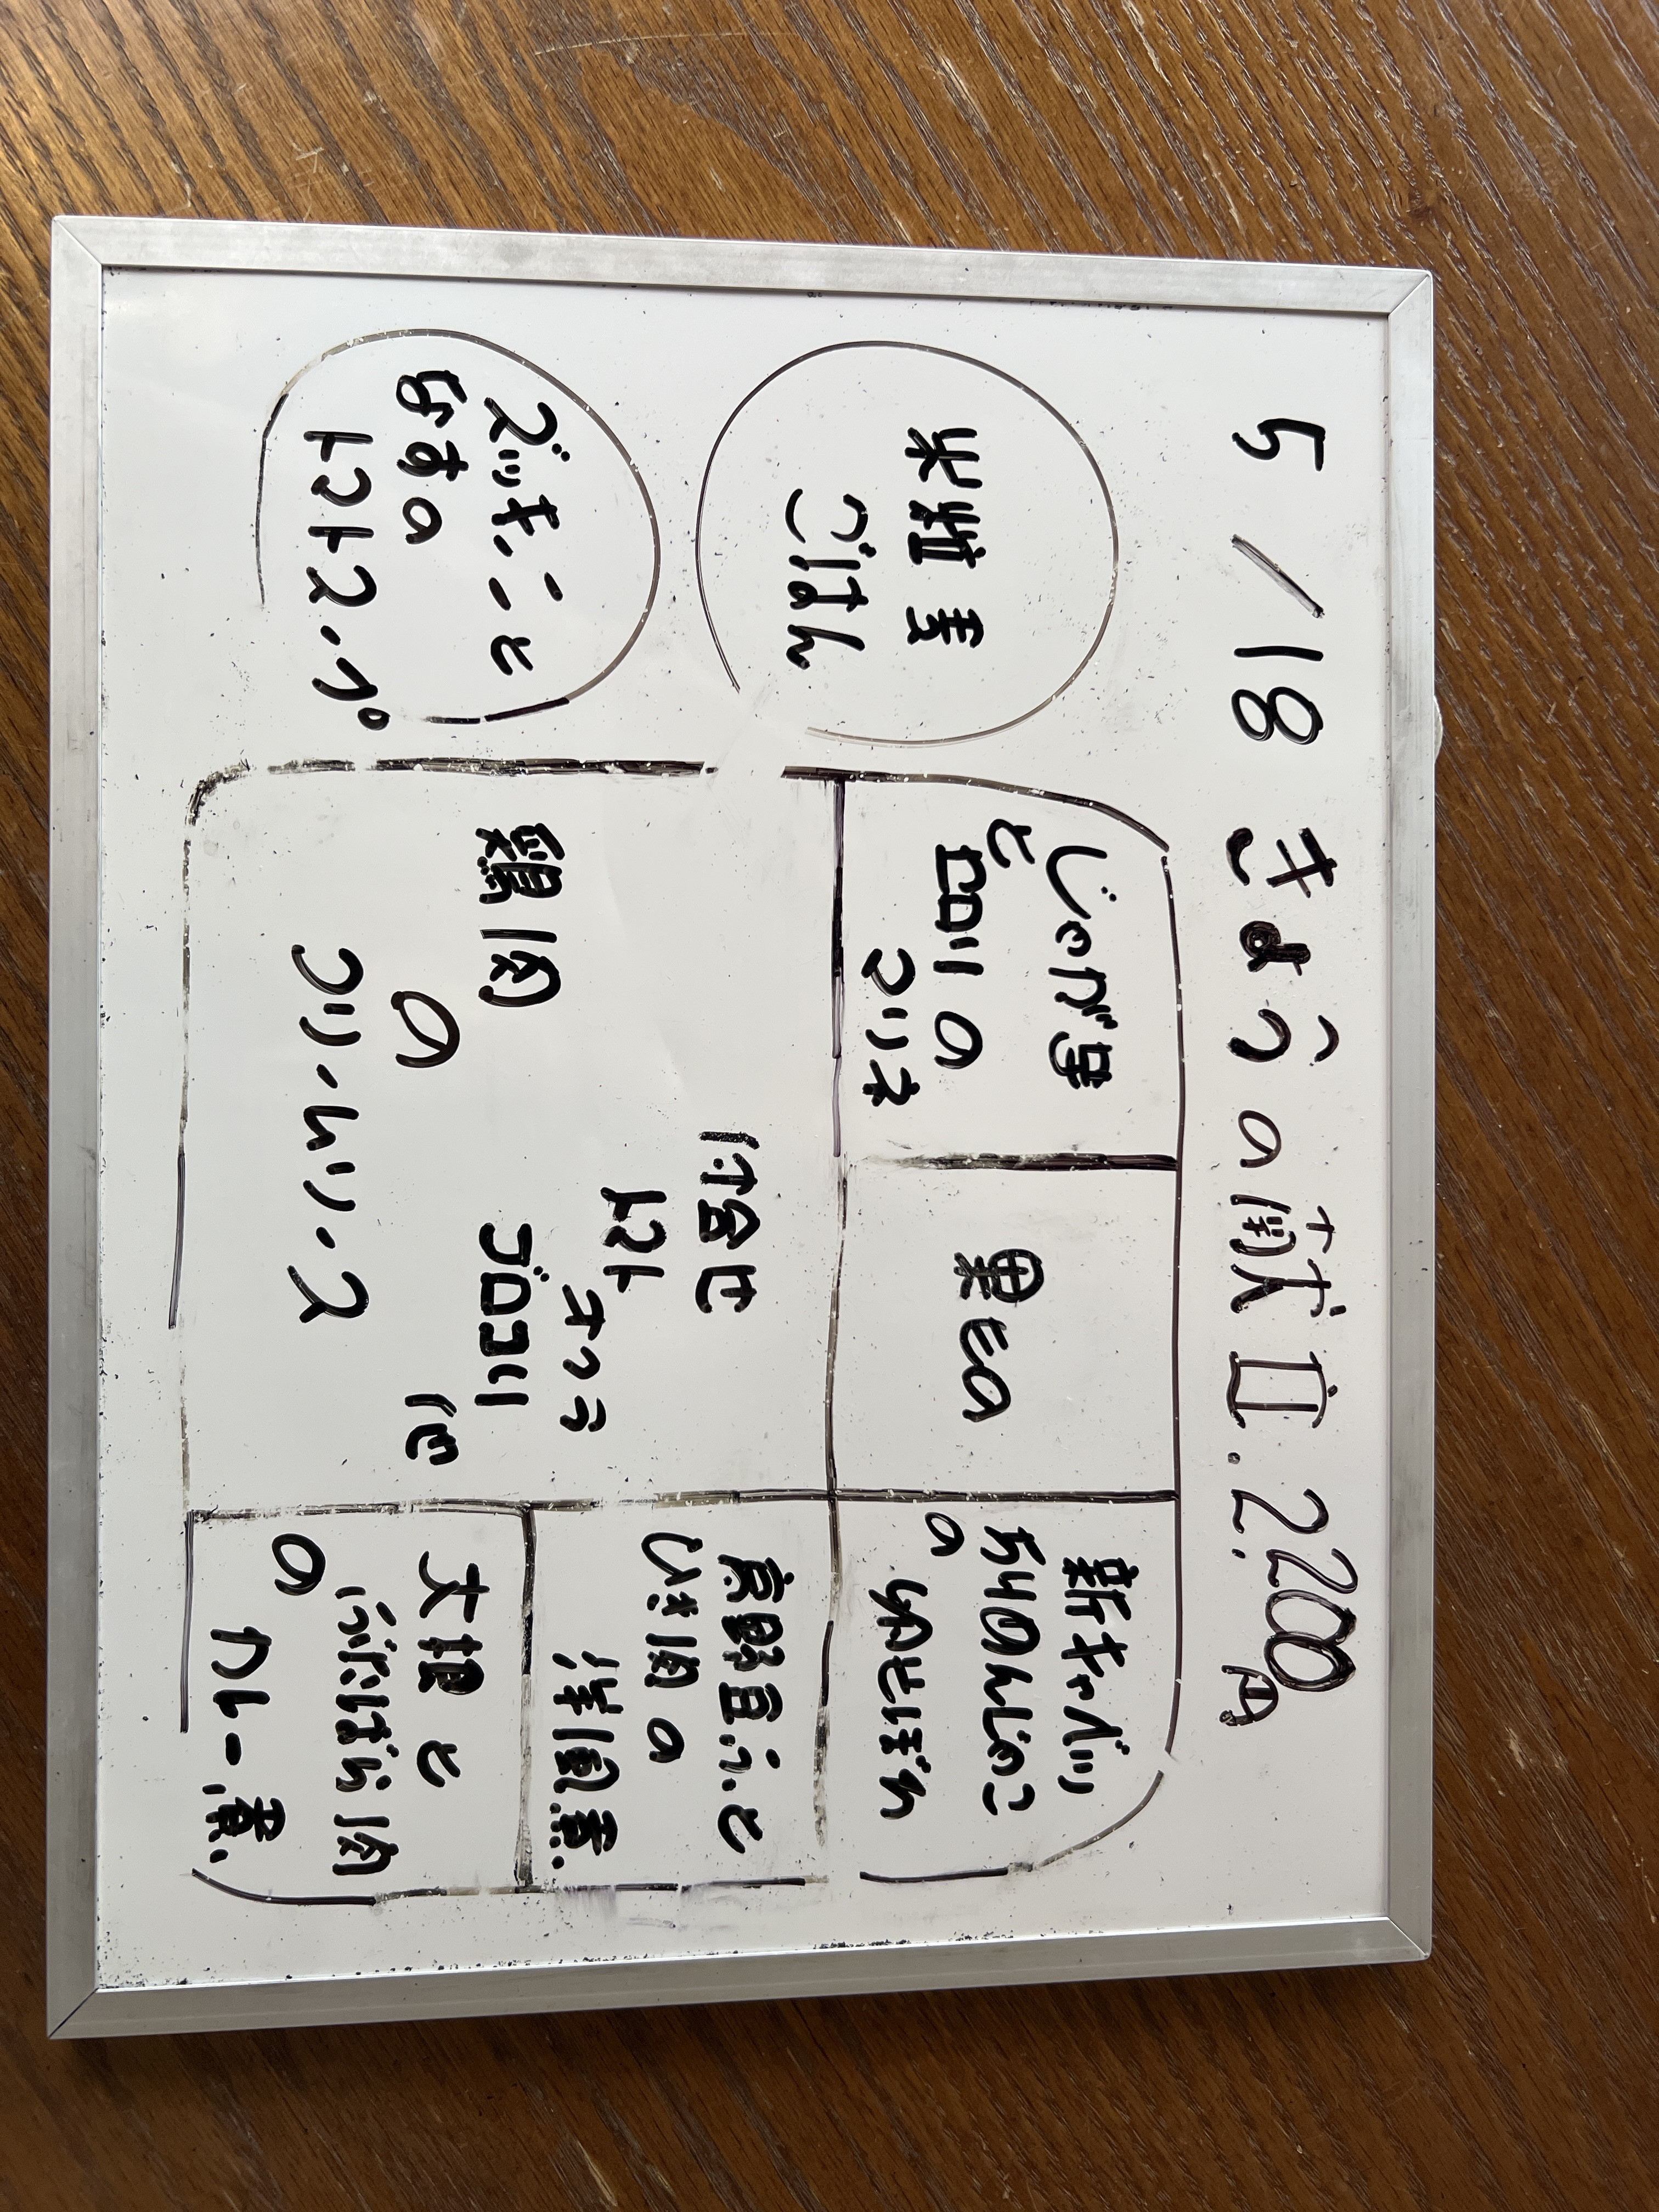 5/18 きょうの献立. 2.200円
じゃが芋
と
セロリの
マリネ
果もの
新キャベツ
ちりめんじゃこ
の
米粒麦
ごはん
付合せ
トマト
オクラ
ブロッコリ
他
鶏肉
の
クリームソース
高野豆ふと
ひき肉の
洋風煮
ズッキーニと
なすの
トマトスープ
大根と
ぶたばら肉
の
カレー煮